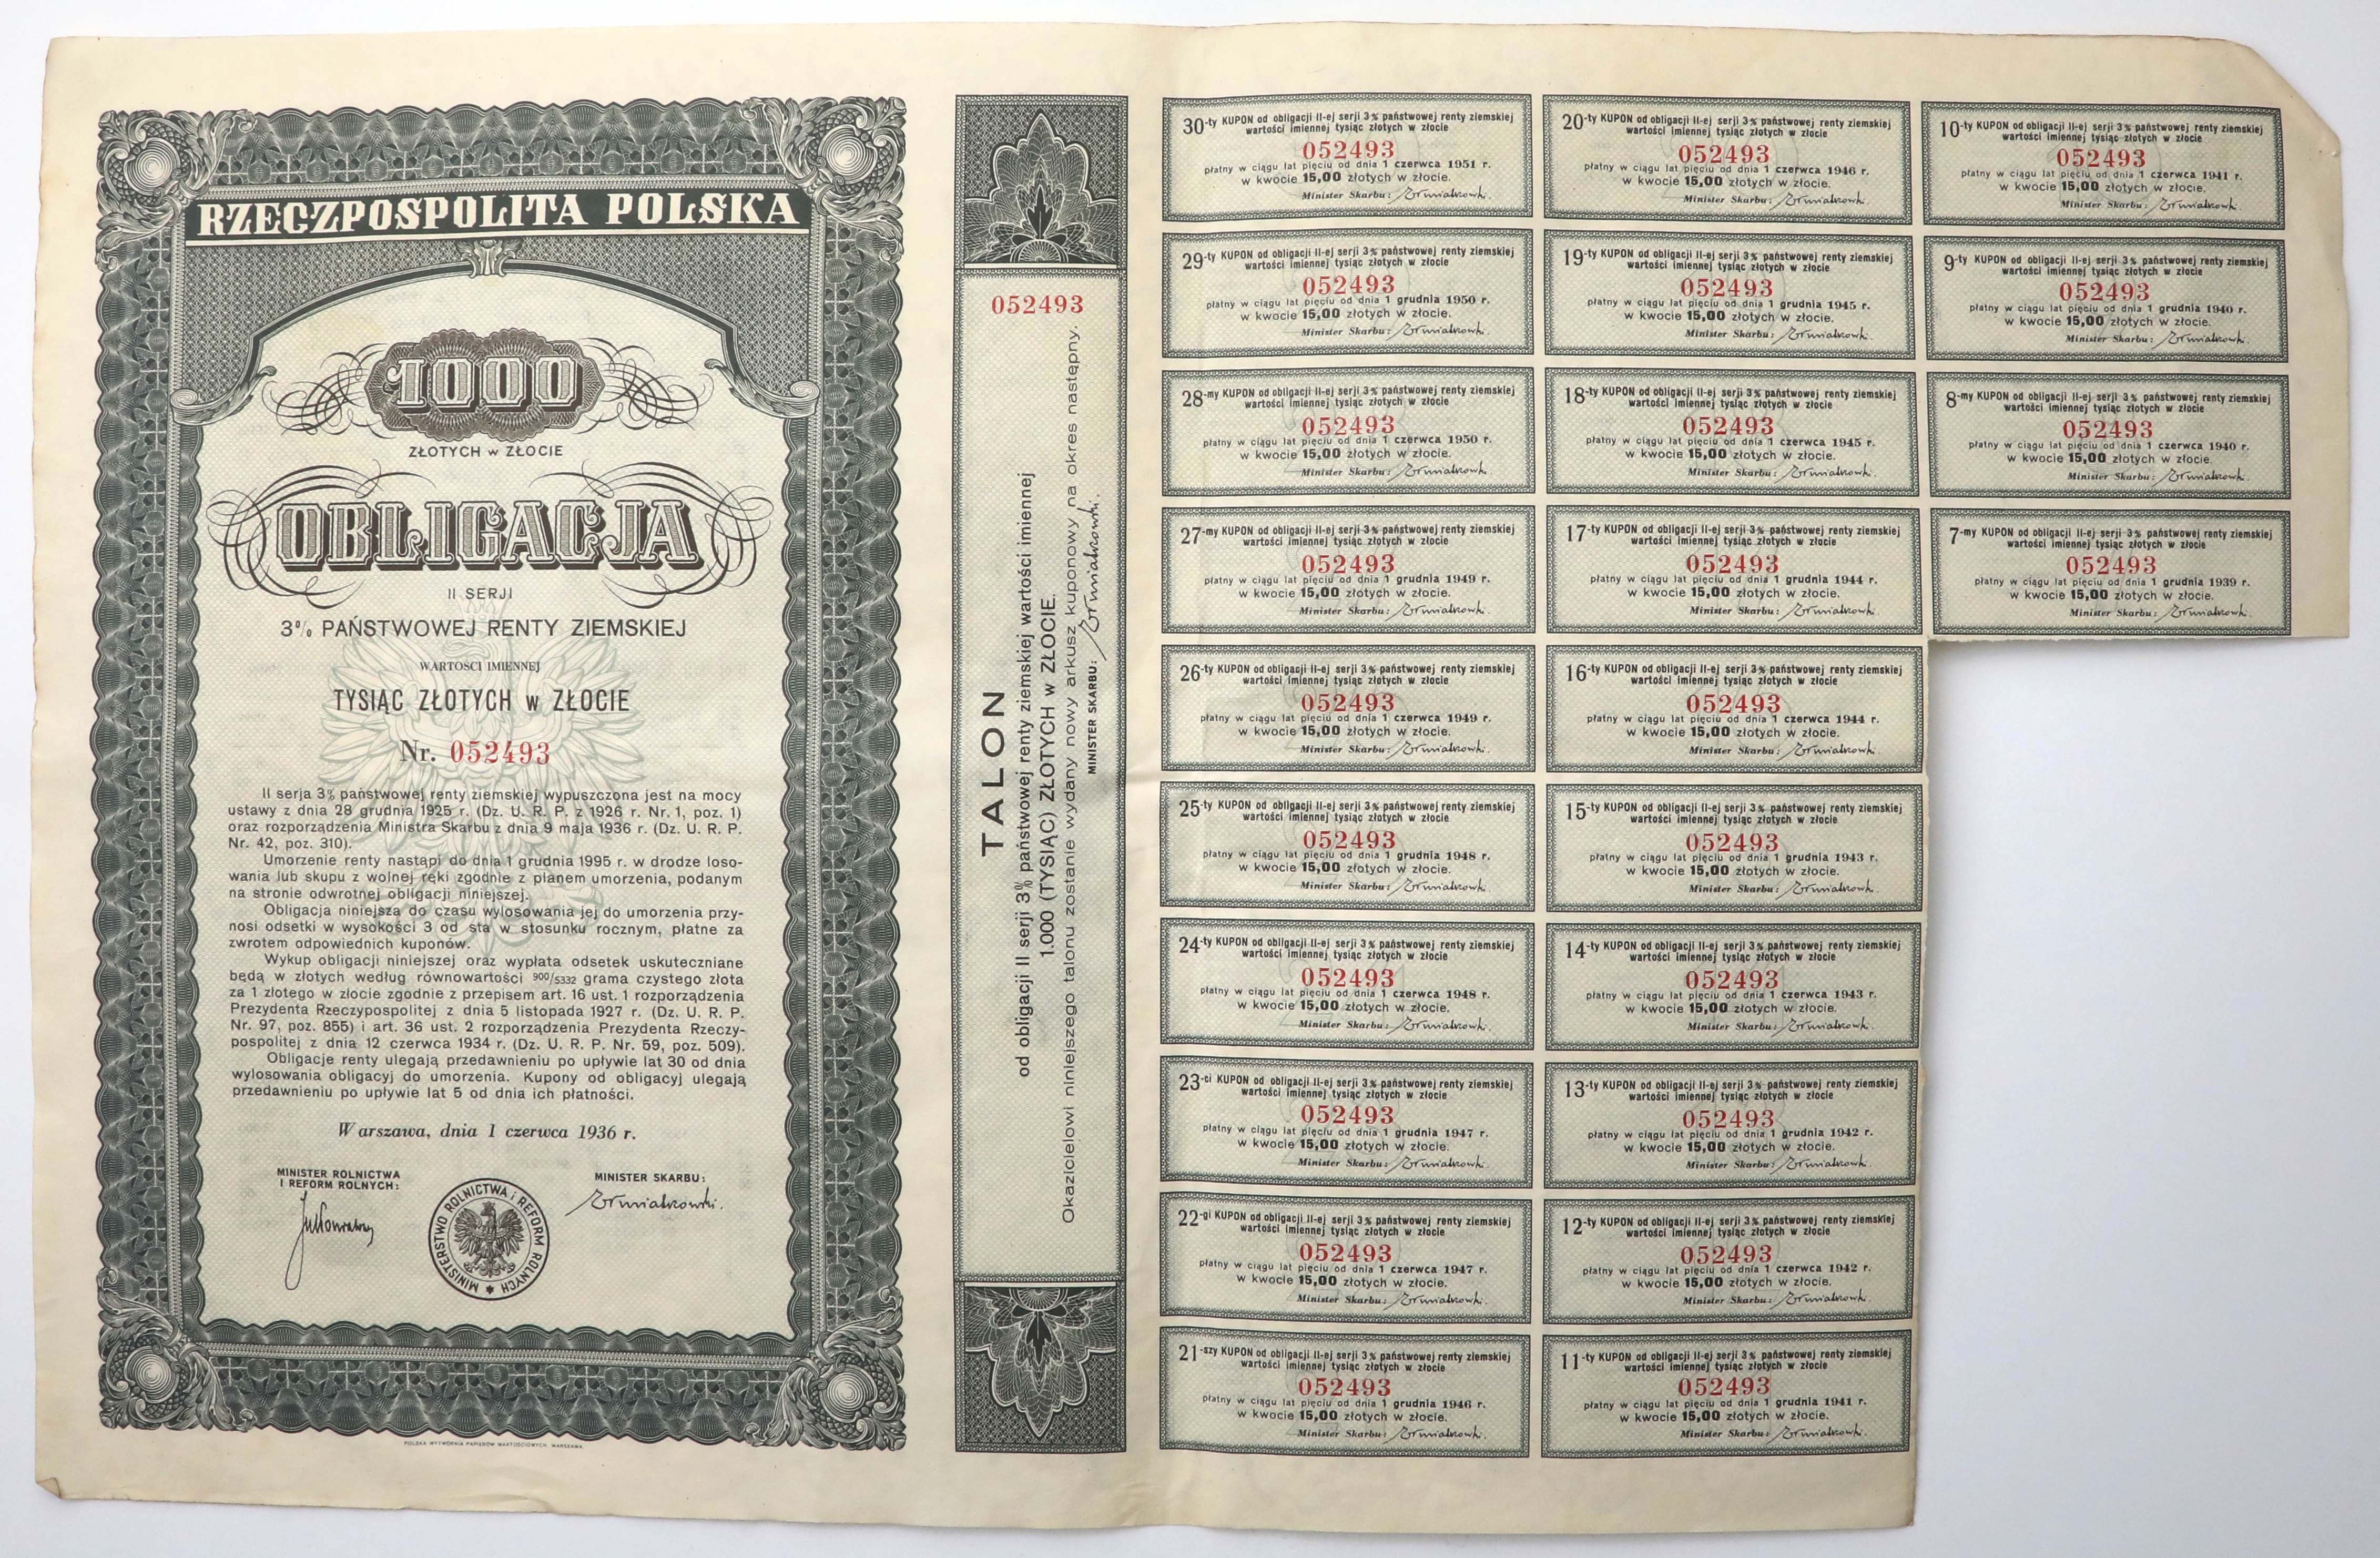 RZECZPOSPOLITA POLSKA
1000
ZŁOTYCH w ZŁOCIE
OBLIGACJA
II SERJI
3% PAŃSTWOWEJ RENTY ZIEMSKIEJ
WARTOŚCI IMIENNEJ
TYSIĄC ZŁOTYCH w ZŁOCIE
Nr. 052493
II serja 3% państwowej renty ziemskiej wypuszczona jest na mocy
ustawy z dnia 28 grudnia 1925 r. (Dz. U. R. P. z 1926 r. Nr. 1, poz. 1)
oraz rozporządzenia Ministra Skarbu z dnia 9 maja 1936 r. (Dz. U. R. P.
Nr. 42, poz. 310).
Umorzenie renty nastąpi do dnia 1 grudnia 1995 r. w drodze loso-
wania lub skupu z wolnej ręki zgodnie z planem umorzenia, podanym
na stronie odwrotnej obligacji niniejszej.
Obligacja niniejsza do czasu wylosowania jej do umorzenia przy-
nosi odsetki w wysokości 3 od sta w stosunku rocznym, płatne za
zwrotem odpowiednich kuponów.
Wykup obligacji niniejszej oraz wypłata odsetek uskuteczniane
będą w złotych według równowartości 900/5332 grama czystego złota
za 1 złotego w złocie zgodnie z przepisem art. 16 ust. 1 rozporządzenia
Prezydenta Rzeczypospolitej z dnia 5 listopada 1927 r. (Dz. U. R. P.
Nr. 97, poz. 855) i art. 36 ust. 2 rozporządzenia Prezydenta Rzeczy-
pospolitej z dnia 12 czerwca 1934 r. (Dz. U. R. P. Nr. 59, poz. 509).
Obligacje renty ulegają przedawnieniu po upływie lat 30 od dnia
wylosowania obligacyj do umorzenia. Kupony od obligacyj ulegają
przedawnieniu po upływie lat 5 od dnia ich płatności.
Warszawa, dnia 1 czerwca 1936 r.
MINISTER ROLNICTWA
I REFORM ROLNYCH:
MINISTERSTWO ROLNICTWA i REFORM ROLNYCH
MINISTER SKARBU:
POLSKA WYTWÓRNIA PAPIERÓW WARTOŚCIOWYCH. WARSZAWA.
052493
TALON
od obligacji II serji 3% państwowej renty ziemskiej wartości imiennej
1.000 (TYSIĄC) ZŁOTYCH w ZŁOCIE.
Okazicielowi niniejszego talonu zostanie wydany nowy arkusz kuponowy na okres następny.
MINISTER SKARBU:
30-ty KUPON od obligacji II-ej serji 3% państwowej renty ziemskiej
wartości imiennej tysiąc złotych w złocie
052493
płatny w ciągu lat pięciu od dnia 1 czerwca 1951 r.
w kwocie 15,00 złotych w złocie.
Minister Skarbu:
29-ty KUPON od obligacji II-ej serji 3% państwowej renty ziemskiej
wartości imiennej tysiąc złotych w złocie
052493
płatny w ciągu lat pięciu od dnia 1 grudnia 1950 r.
w kwocie 15,00 złotych w złocie.
Minister Skarbu:
28-my KUPON od obligacji II-ej serji 3% państwowej renty ziemskiej
wartości imiennej tysiąc złotych w złocie
052493
płatny w ciągu lat pięciu od dnia 1 czerwca 1950 r.
w kwocie 15,00 złotych w złocie.
Minister Skarbu:
27-my KUPON od obligacji II-ej serji 3% państwowej renty ziemskiej
wartości imiennej tysiąc złotych w złocie
052493
płatny w ciągu lat pięciu od dnia 1 grudnia 1949 r.
w kwocie 15,00 złotych w złocie.
Minister Skarbu:
26-ty KUPON od obligacji II-ej serji 3% państwowej renty ziemskiej
wartości imiennej tysiąc złotych w złocie
052493
płatny w ciągu lat pięciu od dnia 1 czerwca 1949 r.
w kwocie 15,00 złotych w złocie.
Minister Skarbu:
25-ty KUPON od obligacji II-ej serji 3% państwowej renty ziemskiej
wartości imiennej tysiąc złotych w złocie
052493
płatny w ciągu lat pięciu od dnia 1 grudnia 1948 r.
w kwocie 15,00 złotych w złocie.
Minister Skarbu:
24-ty KUPON od obligacji II-ej serji 3% państwowej renty ziemskiej
wartości imiennej tysiąc złotych w złocie
052493
płatny w ciągu lat pięciu od dnia 1 czerwca 1948 r.
w kwocie 15,00 złotych w złocie.
Minister Skarbu:
23-ci KUPON od obligacji II-ej serji 3% państwowej renty ziemskiej
wartości imiennej tysiąc złotych w złocie
052493
płatny w ciągu lat pięciu od dnia 1 grudnia 1947 r.
w kwocie 15,00 złotych w złocie.
Minister Skarbu:
22-gi KUPON od obligacji II-ej serji 3% państwowej renty ziemskiej
wartości imiennej tysiąc złotych w złocie
052493
płatny w ciągu lat pięciu od dnia 1 czerwca 1947 r.
w kwocie 15,00 złotych w złocie.
Minister Skarbu:
21-szy KUPON od obligacji II-ej serji 3% państwowej renty ziemskiej
wartości imiennej tysiąc złotych w złocie
052493
płatny w ciągu lat pięciu od dnia 1 grudnia 1946 r.
w kwocie 15,00 złotych w złocie.
Minister Skarbu:
20-ty KUPON od obligacji II-ej serji 3% państwowej renty ziemskiej
wartości imiennej tysiąc złotych w złocie
052493
płatny w ciągu lat pięciu od dnia 1 czerwca 1946 r.
w kwocie 15,00 złotych w złocie.
Minister Skarbu:
19-ty KUPON od obligacji II-ej serji 3% państwowej renty ziemskiej
wartości imiennej tysiąc złotych w złocie
052493
płatny w ciągu lat pięciu od dnia 1 grudnia 1945 r.
w kwocie 15,00 złotych w złocie.
Minister Skarbu:
18-ty KUPON od obligacji II-ej serji 3% państwowej renty ziemskiej
wartości imiennej tysiąc złotych w złocie
052493
płatny w ciągu lat pięciu od dnia 1 czerwca 1945 r.
w kwocie 15,00 złotych w złocie.
Minister Skarbu:
17-ty KUPON od obligacji II-ej serji 3% państwowej renty ziemskiej
wartości imiennej tysiąc złotych w złocie
052493
płatny w ciągu lat pięciu od dnia 1 grudnia 1944 r.
w kwocie 15,00 złotych w złocie.
Minister Skarbu:
16-ty KUPON od obligacji II-ej serji 3% państwowej renty ziemskiej
wartości imiennej tysiąc złotych w złocie
052493
płatny w ciągu lat pięciu od dnia 1 czerwca 1944 r.
w kwocie 15,00 złotych w złocie.
Minister Skarbu:
15-ty KUPON od obligacji II-ej serji 3% państwowej renty ziemskiej
wartości imiennej tysiąc złotych w złocie
052493
płatny w ciągu lat pięciu od dnia 1 grudnia 1943 r.
w kwocie 15,00 złotych w złocie.
Minister Skarbu:
14-ty KUPON od obligacji II-ej serji 3% państwowej renty ziemskiej
wartości imiennej tysiąc złotych w złocie
052493
płatny w ciągu lat pięciu od dnia 1 czerwca 1943 r.
w kwocie 15,00 złotych w złocie.
Minister Skarbu:
13-ty KUPON od obligacji II-ej serji 3% państwowej renty ziemskiej
wartości imiennej tysiąc złotych w złocie
052493
płatny w ciągu lat pięciu od dnia 1 grudnia 1942 r.
w kwocie 15,00 złotych w złocie.
Minister Skarbu:
12-ty KUPON od obligacji II-ej serji 3% państwowej renty ziemskiej
wartości imiennej tysiąc złotych w złocie
052493
płatny w ciągu lat pięciu od dnia 1 czerwca 1942 r.
w kwocie 15,00 złotych w złocie.
Minister Skarbu:
11-ty KUPON od obligacji II-ej serji 3% państwowej renty ziemskiej
wartości imiennej tysiąc złotych w złocie
052493
płatny w ciągu lat pięciu od dnia 1 grudnia 1941 r.
w kwocie 15,00 złotych w złocie.
Minister Skarbu:
10-ty KUPON od obligacji II-ej serji 3% państwowej renty ziemskiej
wartości imiennej tysiąc złotych w złocie
052493
płatny w ciągu lat pięciu od dnia 1 czerwca 1941 r.
w kwocie 15,00 złotych w złocie.
Minister Skarbu:
9-ty KUPON od obligacji II-ej serji 3% państwowej renty ziemskiej
wartości imiennej tysiąc złotych w złocie
052493
płatny w ciągu lat pięciu od dnia 1 grudnia 1940 r.
w kwocie 15,00 złotych w złocie.
Minister Skarbu:
8-my KUPON od obligacji II-ej serji 3% państwowej renty ziemskiej
wartości imiennej tysiąc złotych w złocie
052493
płatny w ciągu lat pięciu od dnia 1 czerwca 1940 r.
w kwocie 15,00 złotych w złocie.
Minister Skarbu:
7-my KUPON od obligacji II-ej serji 3% państwowej renty ziemskiej
wartości imiennej tysiąc złotych w złocie
052493
płatny w ciągu lat pięciu od dnia 1 grudnia 1939 r.
w kwocie 15,00 złotych w złocie.
Minister Skarbu: